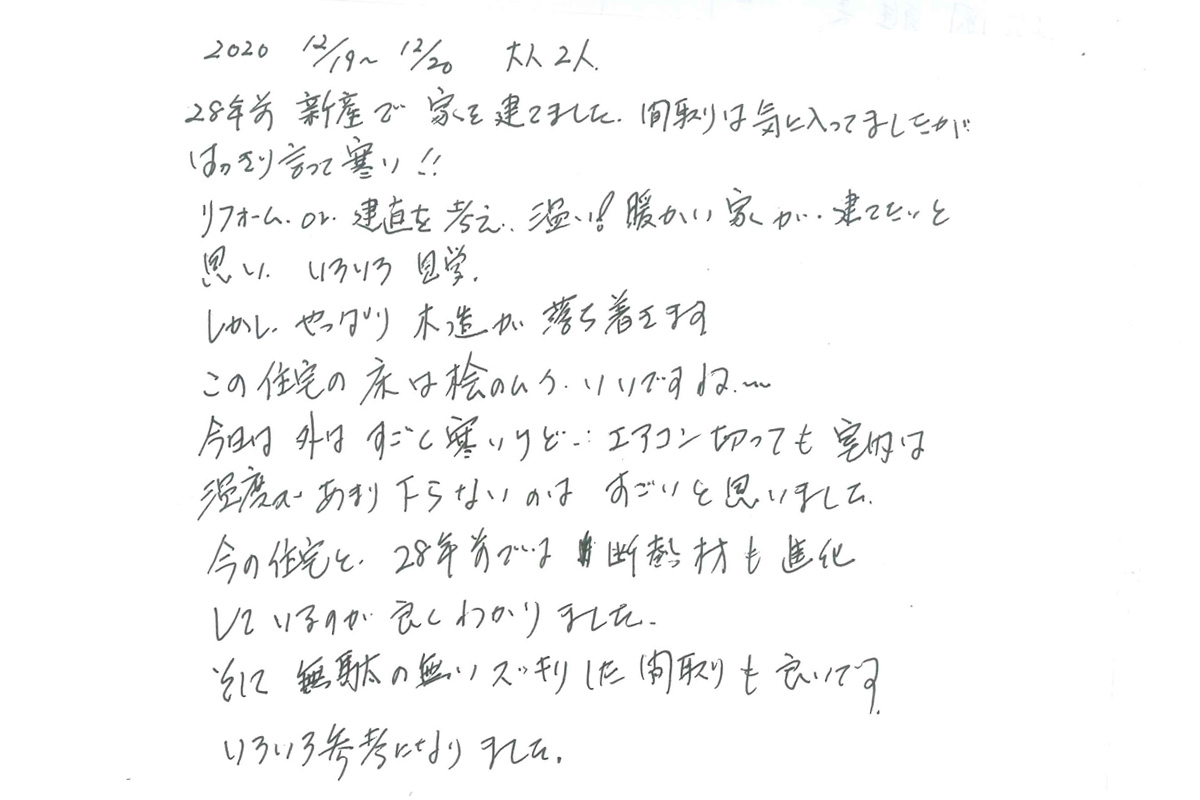 2020 12/19〜12/20 大人2人.
28年前 新産で 家を建てました. 間取りは気に入ってましたが
はっきり言って寒い!!
リフォーム. or. 建直を考え. 温い! 暖かい家が. 建てたいと
思い. いろいろ見学.
しかし. やっぱり 木造が 落ち着きます
この住宅の床は桧のムク. いいですね.〜
今日は外はすごく寒いけど..: エアコン切っても 室内は
温度があまり下らないのは すごいと思いました.
今の住宅と. 28年前では 断熱材も進化
しているのが 良くわかりました.
そして 無駄の無いスッキリした間取りも良いです.
いろいろ参考になりました.